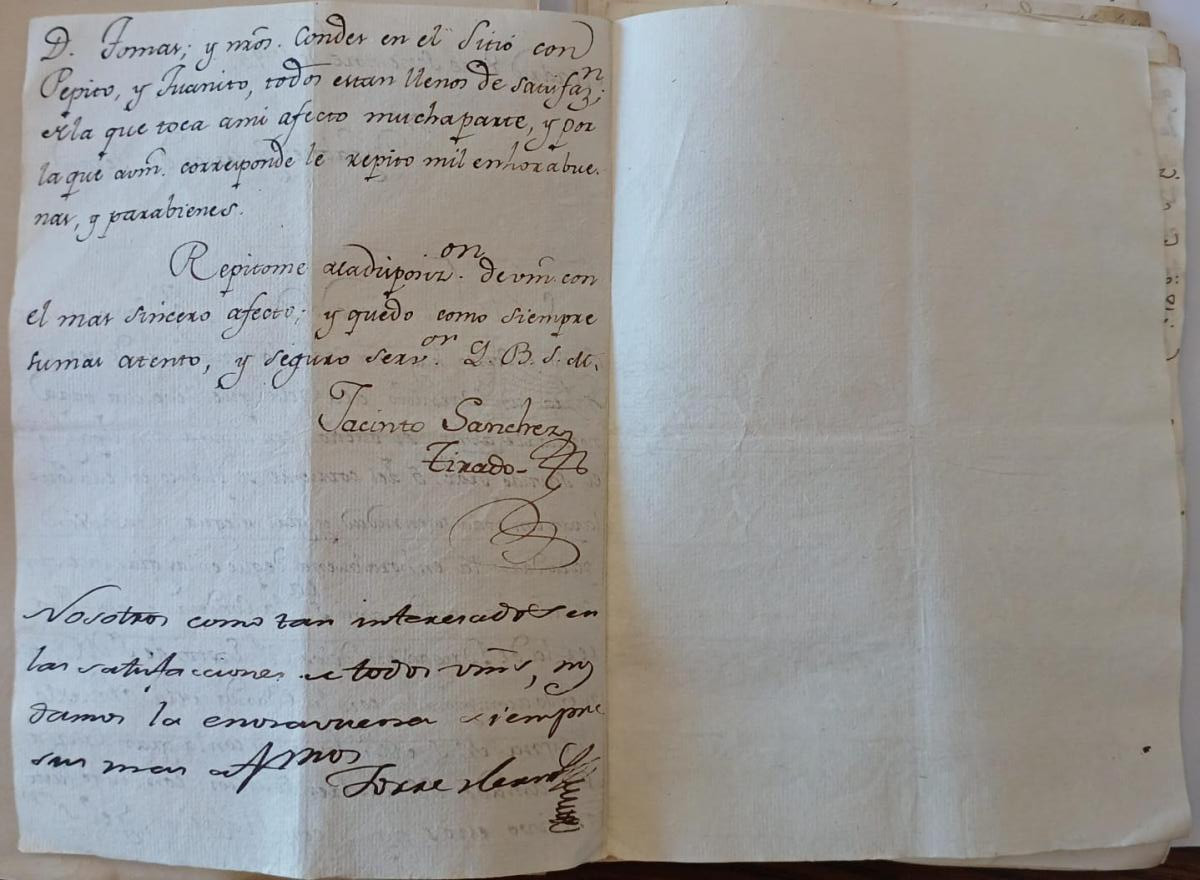 D. Tomas; y nr̃os. Condes en el Sitio con
Pepito, y Juanito, todos estan llenos de satisfaz.n;
de la que toca ami afecto mucha parte, y por
la que avm̃. corresponde le repito mil enhorabue-
nas, y parabienes.
Repitome ala disposiz.on de vm̃. con
el mas sincero afecto; y quedo como siempre
su mas atento, y seguro serv.or Q. B. s. M.
Jacinto Sanchez
Tirado-
Nosotros como tan interesados en
las satisfacciones de todos vm̃s, nos
damos la enoravuena siempre
sus mas afmos
Torre